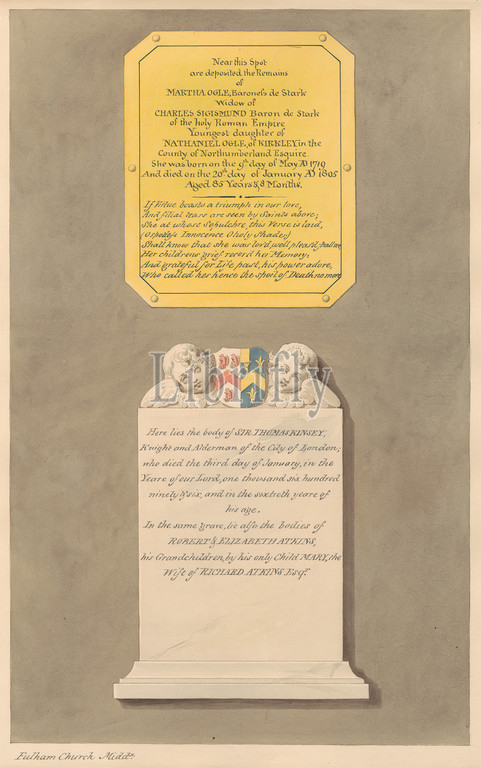 Near this Spot
are deposited the Remains
of
MARTHA OGLE, Baroness de Stark
Widow of
CHARLES SIGISMUND Baron de Stark
of the holy Roman Empire
Youngest daughter of
NATHANIEL OGLE, of KIRKLEY in the
County of Northumberland Esquire
She was born on the 9th day of May AD 1719
And died on the 20th day of January AD 1805
Aged 85 Years & 8 Months.
If Virtue boasts a triumph in our love,
And filial tears are seen by Saints above;
She at whose Sepulchre, this Verse is laid,
(Spotless Innocence O holy Shade,)
Shall know that she was lov'd, well pleas'd,
Her childrens grief record her Memory;
And grateful for Life past, his power adore,
Who called her hence the spoil of Death no more
Librifly
Here lies the body of SIR THOMAS KINSEY,
Knight and Alderman of the City of London;
who died the third day of January, in the
Yeare of our Lord, one thousand six hundred
ninety & six, and in the sixtieth yeare of
his age.
In the same grave, lie also the bodies of
ROBERT & ELIZABETH ATKINS,
his Grandchildren, by his only Child MARY, the
Wife of RICHARD ATKINS, Esqr.
Fulham Church Middx.